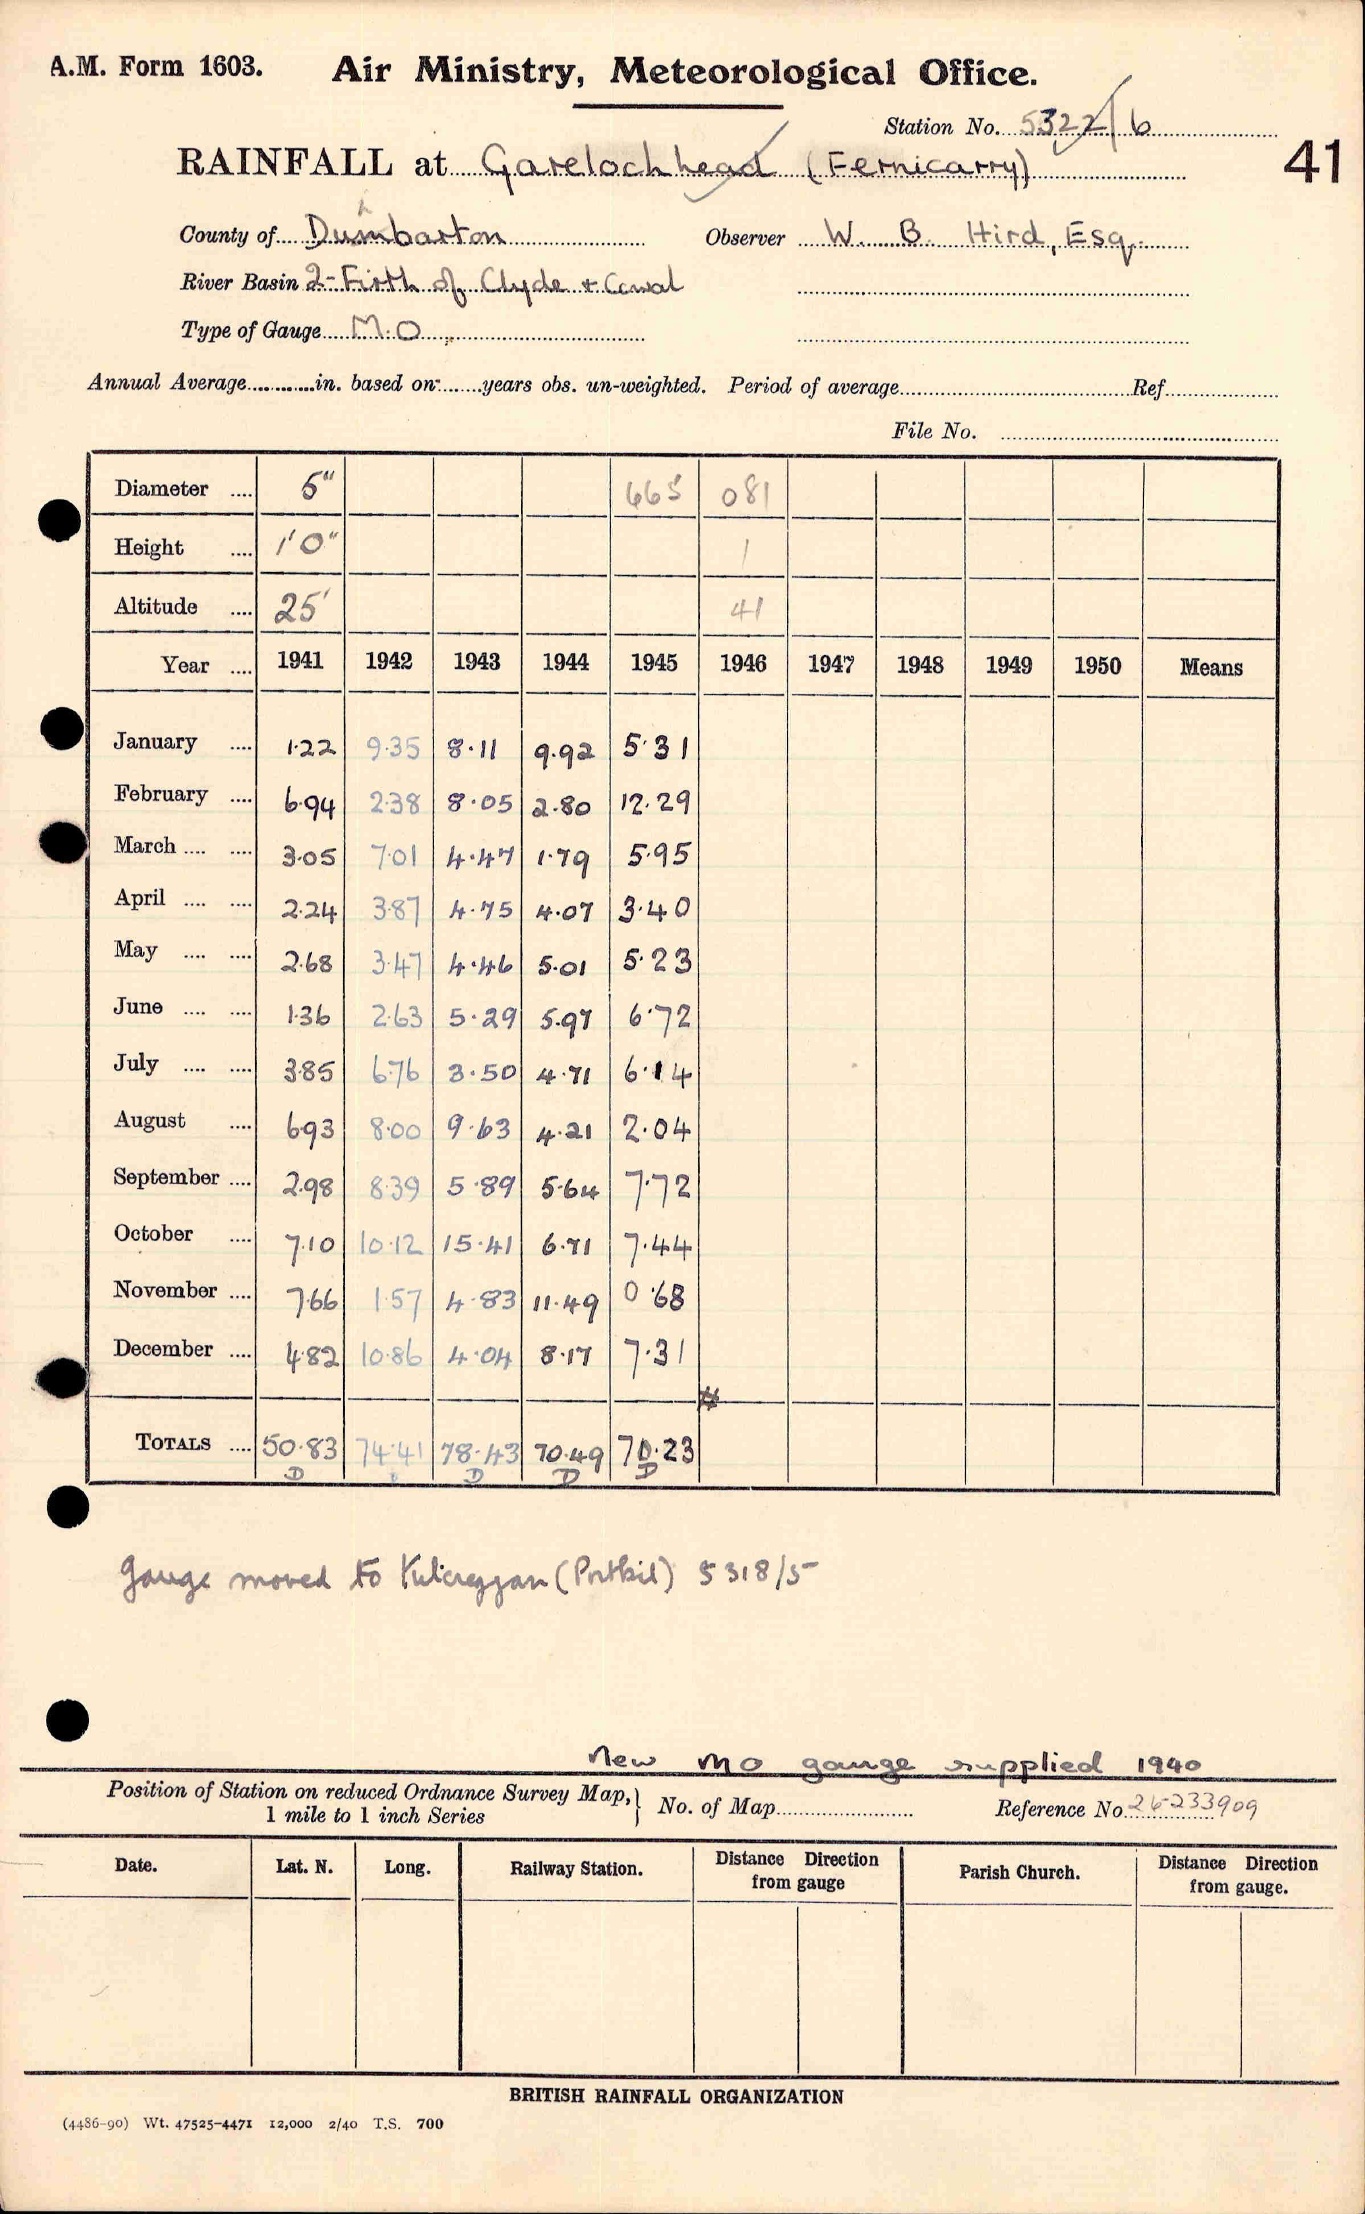 A.M. Form 1603. Air Ministry, Meteorological Office.
Station No. 5322/6
RAINFALL at Garelochhead (Fernicarry) 41
County of Dumbarton Observer W. B. Hird, Esq.
n
River Basin 2-Firth of Clyde + Cowal
Type of Gauge M.O
Annual Average in. based on years obs. un-weighted. Period of average Ref
File No.
Diameter .... 5" 665 081
Height .... 1'0" 1
Altitude .... 25' 41
Year .... 1941 1942 1943 1944 1945 1946 1947 1948 1949 1950 Means
January .... 1.22 9.35 8.11 9.92 5.31
February .... 6.94 2.38 8.05 2.80 12.29
March .... .... 3.05 7.01 4.47 1.79 5.95
April .... .... 2.24 3.87 4.75 4.07 3.40
May .... .... 2.68 3.47 4.46 5.01 5.23
June .... .... 1.36 2.63 5.29 5.97 6.72
July .... .... 3.85 6.76 3.50 4.71 6.14
August .... 6.93 8.00 9.63 4.21 2.04
September .... 2.98 8.39 5.89 5.64 7.72
October .... 7.10 10.12 15.41 6.71 7.44
November .... 7.66 1.57 4.83 11.49 0.68
December .... 4.82 10.86 4.04 8.17 7.31
TOTALS .... 50.83 74.41 78.43 70.49 70.23
D D D D
Gauge moved to Kilcreggan (Portkil) 5318/5
New MO gauge supplied 1940
Position of Station on reduced Ordnance Survey Map, 1 mile to 1 inch Series } No. of Map Reference No. 26-233909
Date. Lat. N. Long. Railway Station. Distance Direction from gauge Parish Church. Distance Direction from gauge.
BRITISH RAINFALL ORGANIZATION
(4486-90) Wt. 47525-4471 12,000 2/40 T.S. 700